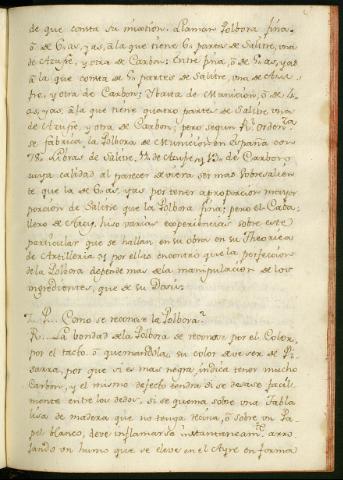 de que consta su mixtion. Llaman Polbora fina,
o de 6 as, y as, a la que tiene 6 partes de Salitre, una
de Azufre, y otra de Carbon; Entre fina, o de 5 as, y as
a la que consta de 5 partes de Salitre, una de Azu-
fre, y otra de Carbon; Y basta de Municion, o de 4
as, y as, a la que tiene quatro partes de Salitre una
de Azufre, y otra de Carbon; pero segun Rl. Orden.za
se fabrica la Polbora de Municion en España con
78 Libras de Salitre, de Azufre, y de Carbon
cuya calidad al parecer deviera ser mas sobresalien
te que la de 6 as, y as por tener a proporcion mayor
porcion de Salitre que la Polbora fina; pero el Caba-
llero de Arcy, hiso varias experiencias sobre este
particular que se hallan en su obra en su Theorica
de Artilleria y por ellas encontro que la perfeccion
de la Polbora depende mas de la manipulacion de los
ingredientes, que de su Dosis.
P. Como se reconoce la Polbora?
R. La bondad de la Polbora se reconose por el Color,
por el tacto, o quemandola, su color deve ser de Pi-
sarra, por que si es mas negra, indica tener mucho
Carbon, y el mismo defecto tendra si se desase facil-
mente entre los dedos, si se quema sobre una Tabla
lisa de madera que no tenga recina, o sobre un Pa-
pel blanco, deve inflamarse instantaneam.te arro-
jando un humo que se eleve en el Ayre en forma